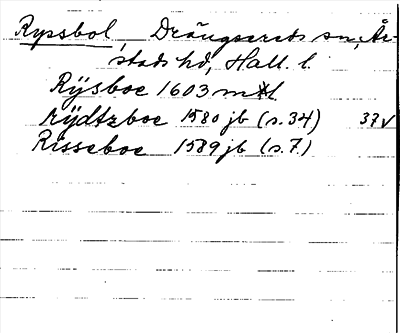 Ryssbol, Drängsereds sn, År-
stads hd, Hall. l.
Rÿsboe 1603 mtl.
Rÿdtzboe 1580 jb (s. 34) 37v
Risseboe 1589 jb (s. 7.)